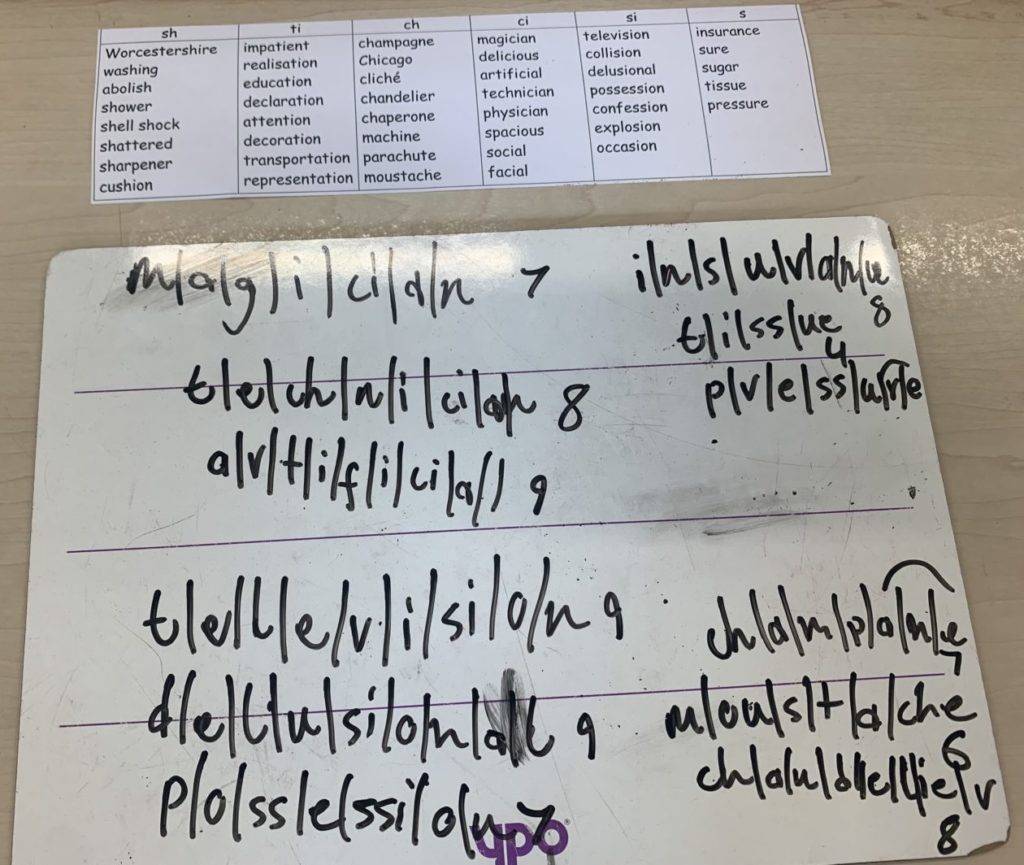 sh ti ch ci si s
Worcestershire impatient champagne magician television insurance
washing realisation Chicago delicious collision sure
abolish education cliché artificial delusional sugar
shower declaration chandelier technician possession tissue
shell shock attention chaperone physician confession pressure
shattered decoration machine spacious explosion
sharpener transportation parachute social occasion
cushion representation moustache facial
m/a/g/i/ci/a/n 7
t/e/ch/n/i/ci/a/n 8
a/r/t/i/f/i/ci/a/l 9
t/e/l/e/v/i/si/o/n 9
d/e/l/u/si/o/n/a/l 9
p/o/ss/e/ssi/o/n 7
i/n/s/u/r/a/n/ce
8
t/i/ss/ue
4
p/r/e/ss/u/r/e
ch/a/m/p/a/n/e
7
m/ou/s/t/a/che
6
ch/a/n/d/e/l/ie/r
8
ypo